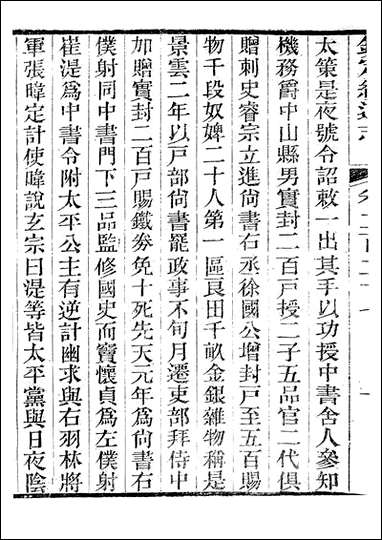 欽定續通志 卷二百二十一 一
太策是夜號令詔敕一出其手以功授中書舍人參知
機務爵中山縣男實封二百戸授二子五品官二代俱
贈刺史睿宗立進尙書右丞徐國公增封戸至五百賜
物千段奴婢二十人第一區良田千畝金銀雜物稱是
景雲二年以戸部尙書罷政事不旬月遷吏部拜侍中
加贈實封二百戸賜鐵券免十死先天元年爲尙書右
僕射同中書門下三品監修國史而竇懷貞爲左僕射
崔湜爲中書令附太平公主有逆計幽求與右羽林將
軍張暐定計使暐說玄宗曰湜等皆太平黨與日夜陰